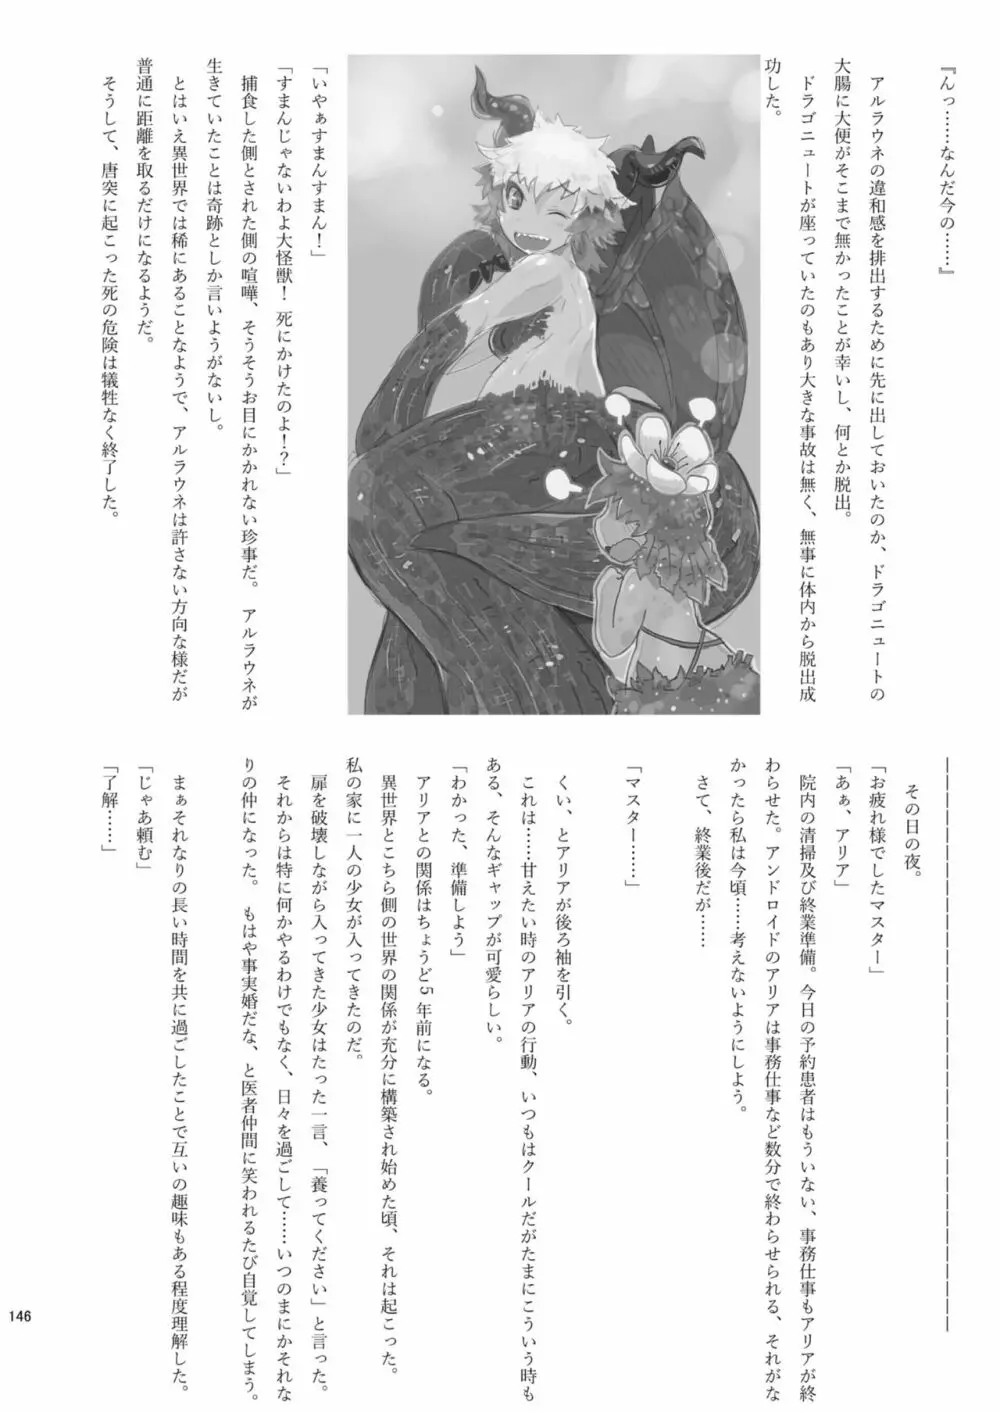 『んっ……なんだ今の……』
アルラウネの違和感を排出するために先に出しておいたのか、ドラゴニュートの
大腸に大便がそこまで無かったことが幸いし、何とか脱出。
ドラゴニュートが座っていたのもあり大きな事故は無く、無事に体内から脱出成
功した。
「いやぁすまんすまん！」
「すまんじゃないわよ大怪獣！死にかけたのよ！？」
捕食した側とされた側の喧嘩、そうそうお目にかかれない珍事だ。　アルラウネが
生きていたことは奇跡としか言いようがないし。
とはいえ異世界では稀にあることなようで、アルラウネは許さない方向な様だが
普通に距離を取るだけになるようだ。
そうして、唐突に起こった死の危険は犠牲なく終了した。
――――――――――――――――――――――――――――――
その日の夜。
「お疲れ様でしたマスター」
「あぁ、アリア」
院内の清掃及び終業準備。今日の予約患者はもういない、事務仕事もアリアが終
わらせた。アンドロイドのアリアは事務仕事など数分で終わらせられる、それがな
かったら私は今頃……考えないようにしよう。
さて、終業後だが……
「マスター……」
くい、とアリアが後ろ袖を引く。
これは……甘えたい時のアリアの行動、いつもはクールだがたまにこういう時も
ある、そんなギャップが可愛らしい。
「わかった、準備しよう」
アリアとの関係はちょうど5年前になる。
異世界とこちら側の世界の関係が充分に構築され始めた頃、それは起こった。
私の家に一人の少女が入ってきたのだ。
扉を破壊しながら入ってきた少女はたった一言、「養ってください」と言った。
それからは特に何かやるわけでもなく、日々を過ごして……いつのまにかそれな
りの仲になった。　もはや事実婚だな、と医者仲間に笑われるたび自覚してしまう。
まぁそれなりの長い時間を共に過ごしたことで互いの趣味もある程度理解した。
「じゃあ頼む」
「了解……」
146